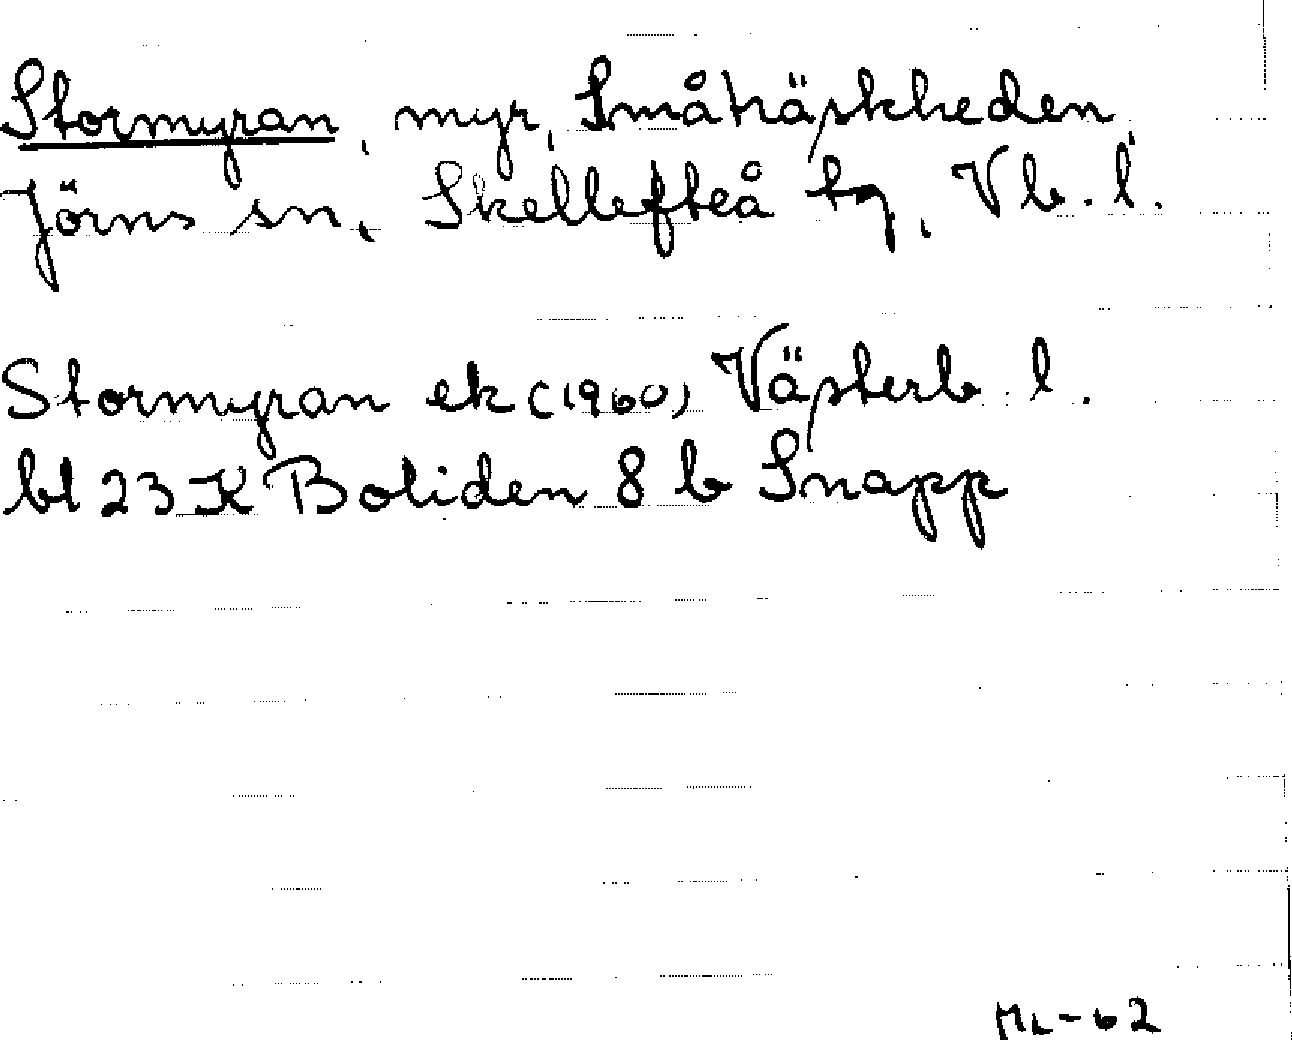 Stormyran, myr, Småträskheden,
Jörns sn, Skellefteå tg, Vb. l.
Stormyran ek (1960) Västerb. l.
bl 23 K Boliden 8 b Snapp
ML-62